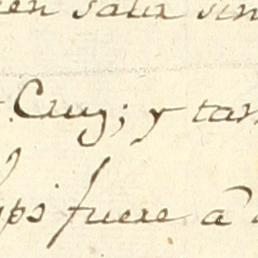 en salir sin
Cruz; y tan
fuere â